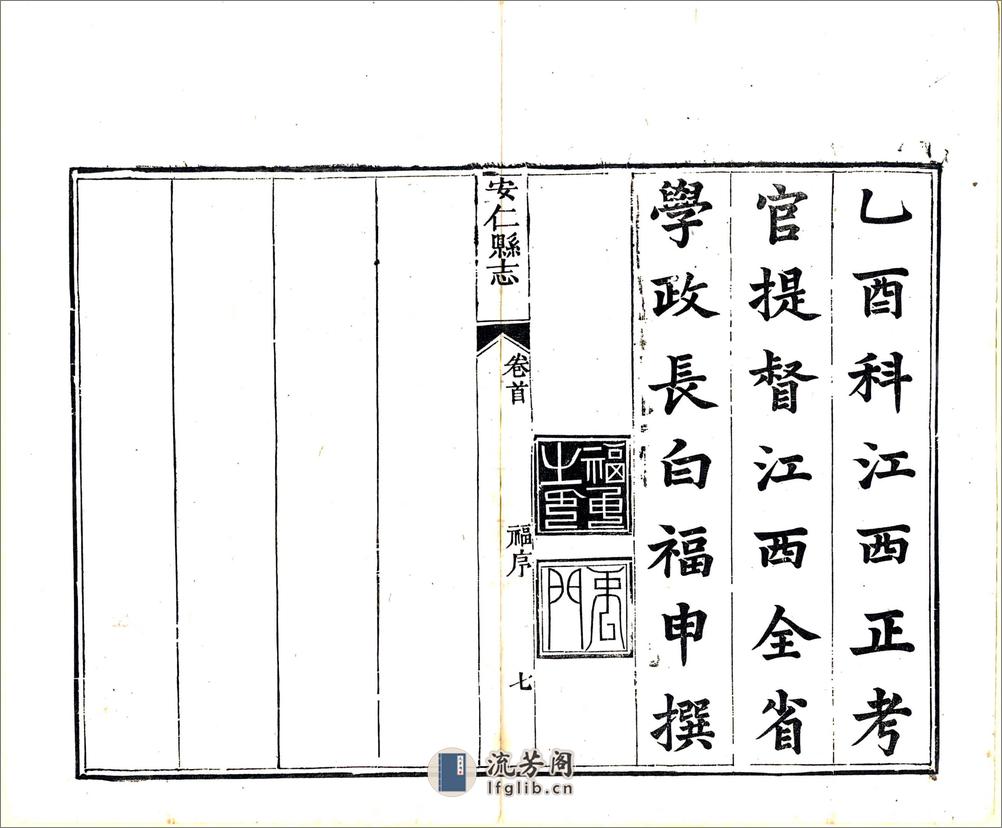 乙酉科江西正考
官提督江西全省
學政長白福申撰
福申之印
禹門
安仁縣志
卷首
福序
七
流芳阁
lfglib.cn